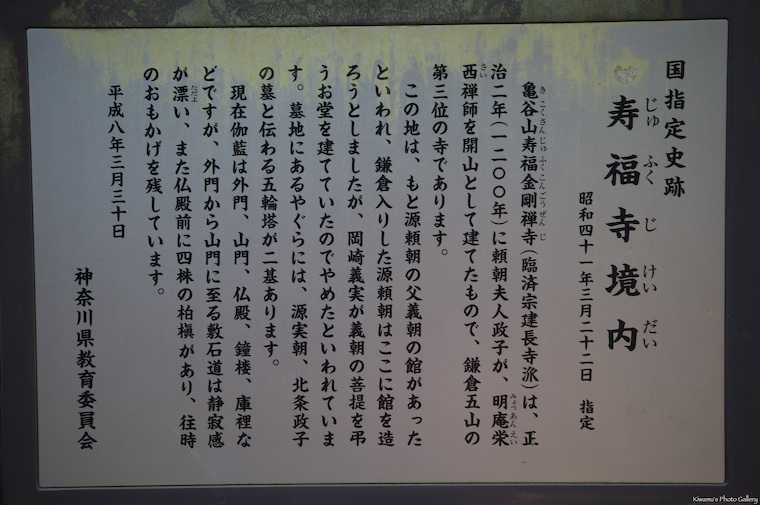 国指定史跡
寿福寺境内
じゅふくじけいだい
昭和四十一年三月二十二日 指定
亀谷山寿福金剛禅寺(臨済宗建長寺派)は、正
きこくさんじゅふくこんごうぜんじ
治二年(一二〇〇年)に頼朝夫人政子が、明庵栄
みょうあんえい
西禅師を開山として建てたもので、鎌倉五山の
さい
第三位の寺であります。
この地は、もと源頼朝の父義朝の館があった
といわれ、鎌倉入りした源頼朝はここに館を造
ろうとしましたが、岡崎義実が義朝の菩提を弔
うお堂を建てていたのでやめたといわれていま
す。墓地にあるやぐらには、源実朝、北条政子
の墓と伝わる五輪塔が二基あります。
現在伽藍は外門、山門、仏殿、鐘楼、庫裡な
どですが、外門から山門に至る敷石道は静寂感
が漂い、また仏殿前に四株の柏槇があり、往時
ただよ
のおもかげを残しています。
平成八年三月三十日
神奈川県教育委員会
Kiwamu's Photo Gallery